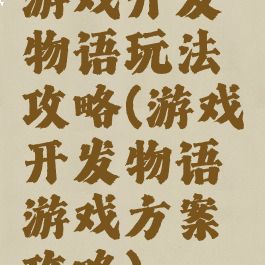 游戏开发
物语玩法
攻略(游戏
开发物语
游戏方案
攻略)